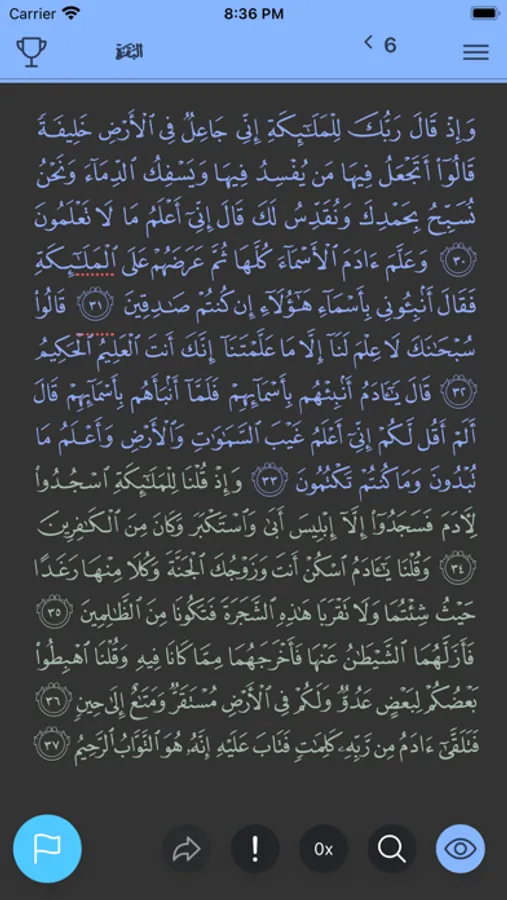 Carrier 8:36 PM
البقرة < 6
وَإِذْ قَالَ رَبُّكَ لِلْمَلَـٰٓئِكَةِ إِنِّى جَاعِلٌ فِى ٱلْأَرْضِ خَلِيفَةً
قَالُوٓا۟ أَتَجْعَلُ فِيهَا مَن يُفْسِدُ فِيهَا وَيَسْفِكُ ٱلدِّمَآءَ وَنَحْنُ
نُسَبِّحُ بِحَمْدِكَ وَنُقَدِّسُ لَكَ قَالَ إِنِّىٓ أَعْلَمُ مَا لَا تَعْلَمُونَ
٣٠ وَعَلَّمَ ءَادَمَ ٱلْأَسْمَآءَ كُلَّهَا ثُمَّ عَرَضَهُمْ عَلَى ٱلْمَلَـٰٓئِكَةِ
فَقَالَ أَنۢبِـُٔونِى بِأَسْمَآءِ هَـٰٓؤُلَآءِ إِن كُنتُمْ صَـٰدِقِينَ ٣١ قَالُوا۟
سُبْحَـٰنَكَ لَا عِلْمَ لَنَآ إِلَّا مَا عَلَّمْتَنَآ إِنَّكَ أَنتَ ٱلْعَلِيمُ ٱلْحَكِيمُ
٣٢ قَالَ يَـٰٓـَٔادَمُ أَنۢبِئْهُم بِأَسْمَآئِهِمْ فَلَمَّآ أَنۢبَأَهُم بِأَسْمَآئِهِمْ قَالَ
أَلَمْ أَقُل لَّكُمْ إِنِّىٓ أَعْلَمُ غَيْبَ ٱلسَّمَـٰوَٰتِ وَٱلْأَرْضِ وَأَعْلَمُ مَا
تُبْدُونَ وَمَا كُنتُمْ تَكْتُمُونَ ٣٣ وَإِذْ قُلْنَا لِلْمَلَـٰٓئِكَةِ ٱسْجُدُوا۟
لِـَٔادَمَ فَسَجَدُوٓا۟ إِلَّآ إِبْلِيسَ أَبَىٰ وَٱسْتَكْبَرَ وَكَانَ مِنَ ٱلْكَـٰفِرِينَ
٣٤ وَقُلْنَا يَـٰٓـَٔادَمُ ٱسْكُنْ أَنتَ وَزَوْجُكَ ٱلْجَنَّةَ وَكُلَا مِنْهَا رَغَدًا
حَيْثُ شِئْتُمَا وَلَا تَقْرَبَا هَـٰذِهِ ٱلشَّجَرَةَ فَتَكُونَا مِنَ ٱلظَّـٰلِمِينَ ٣٥
فَأَزَلَّهُمَا ٱلشَّيْطَـٰنُ عَنْهَا فَأَخْرَجَهُمَا مِمَّا كَانَا فِيهِ وَقُلْنَا ٱهْبِطُوا۟
بَعْضُكُمْ لِبَعْضٍ عَدُوٌّ وَلَكُمْ فِى ٱلْأَرْضِ مُسْتَقَرٌّ وَمَتَـٰعٌ إِلَىٰ حِينٍ ٣٦
فَتَلَقَّىٰٓ ءَادَمُ مِن رَّبِّهِۦ كَلِمَـٰتٍ فَتَابَ عَلَيْهِ إِنَّهُۥ هُوَ ٱلتَّوَّابُ ٱلرَّحِيمُ ٣٧
! 0x